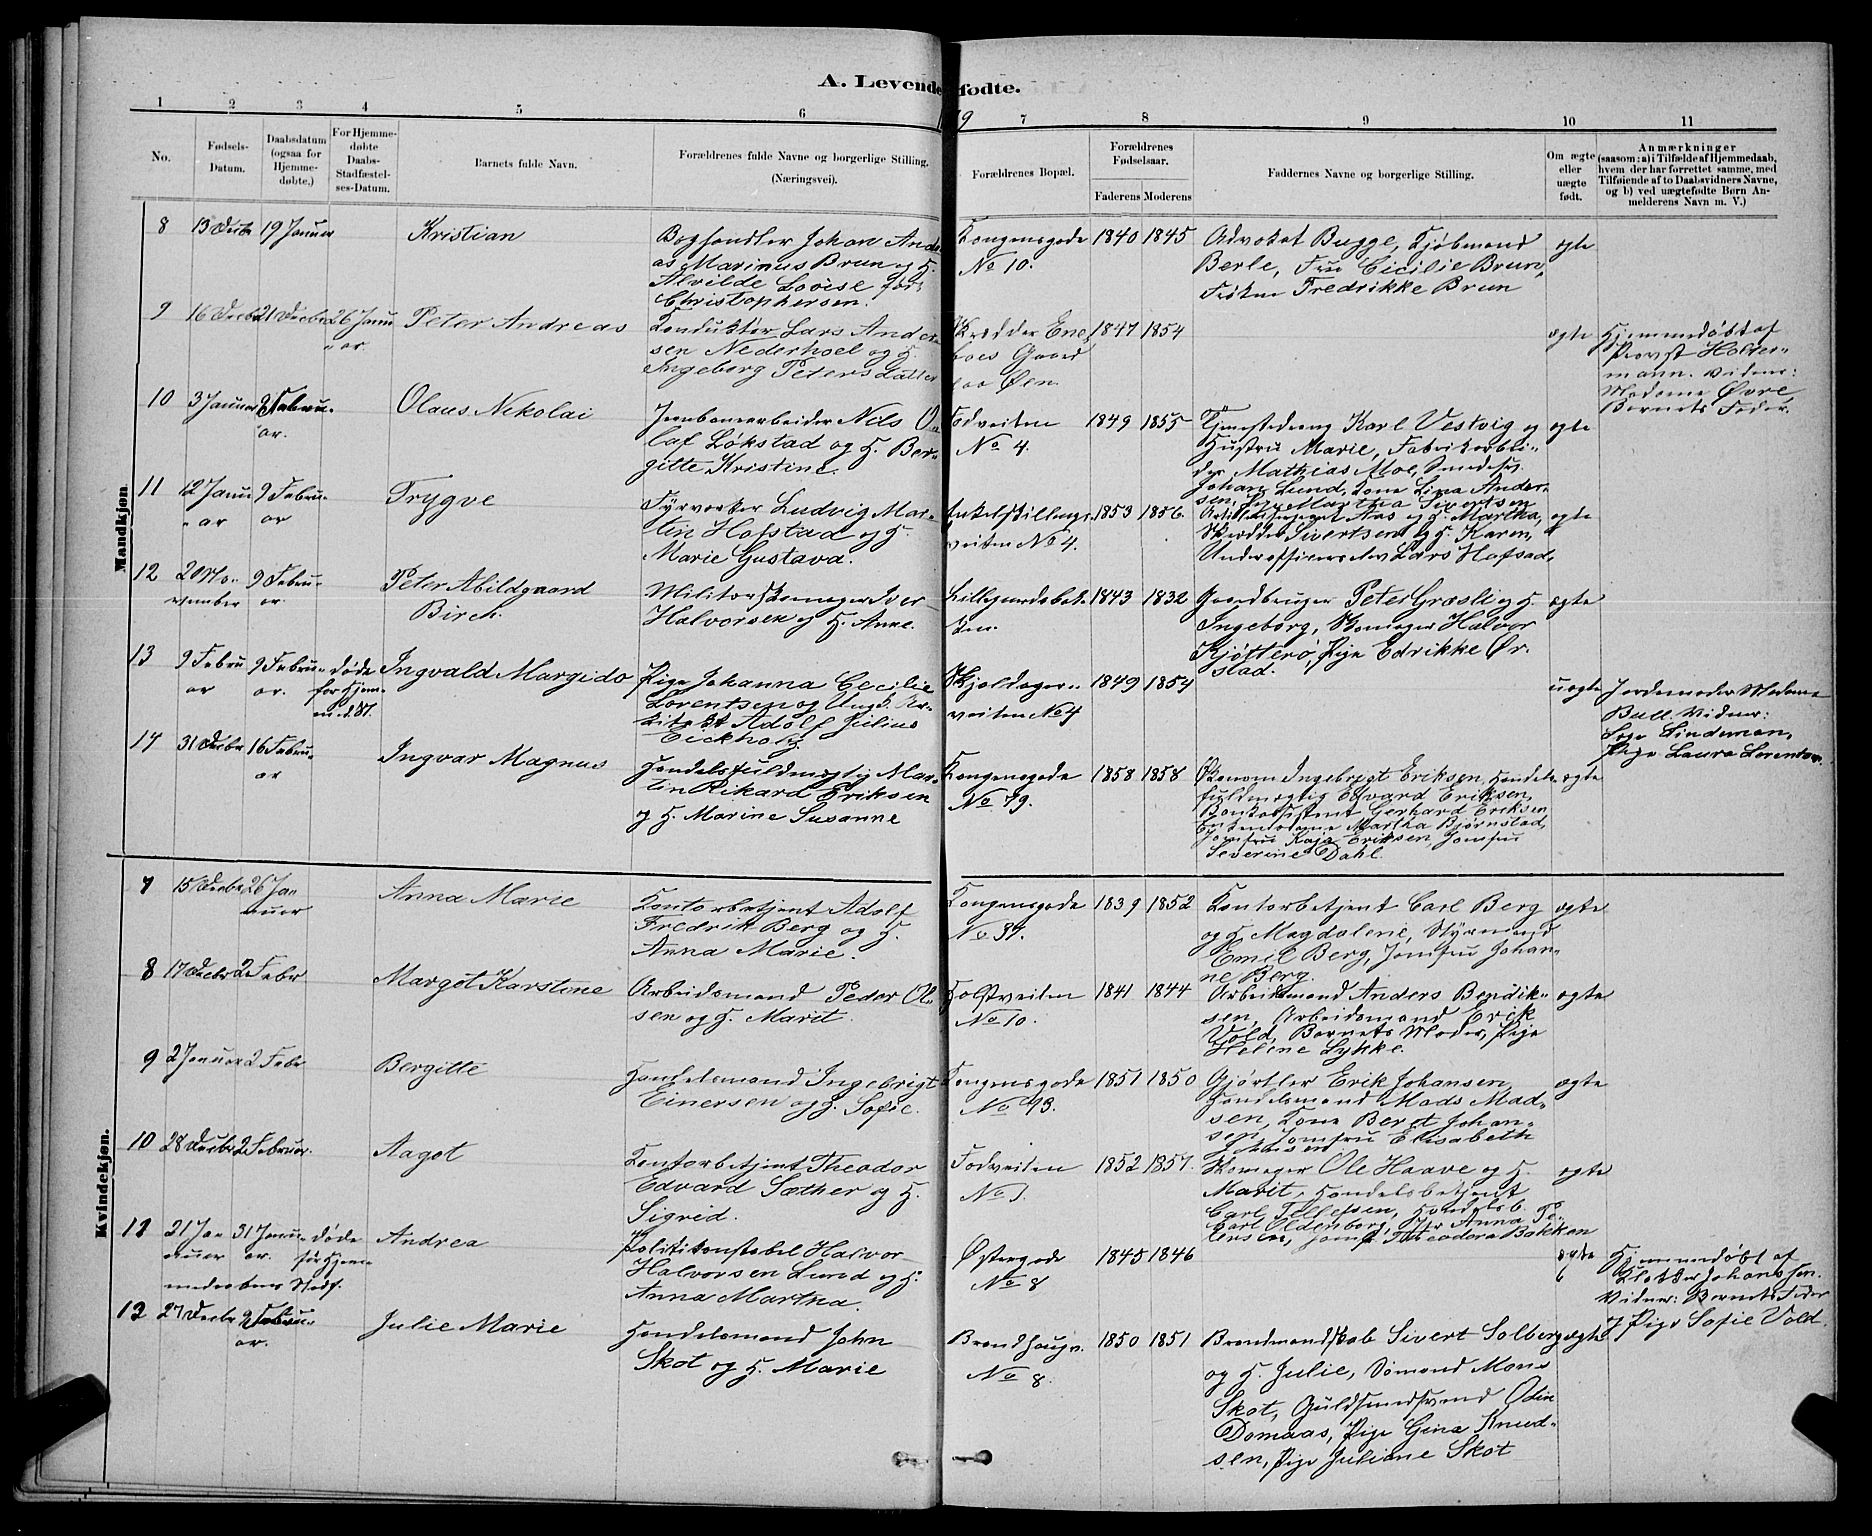 A. Levendefødte.
1 2 3 4 5 6 7 8 9 10 11
No.
Fødsels-
Datum.
Daabsdatum
(ogsaa for
Hjemme-
døbte.)
For Hjemme-
døbte
Daabs-
Stadfæstel-
ses-Datum.
Barnets fulde Navn.
Forældrenes fulde Navne og borgerlige Stilling.
(Næringsvei).
Forældrenes Bopæl.
Forældrenes
Fødselsaar.
Faderens Moderens
Faddernes Navne og borgerlige Stilling.
Om ægte
eller
uægte
født.
Anmærkninger
(saasom: a) i Tilfælde af Hjemmedaab,
hvem der har forrettet samme, med
Tilføiende af to Daabsvidners Navne,
og b) ved uægtefødte Børn An-
melderens Navn m. V.)
Mandkjøn.
8 13 Decbr 19 Januar
Kristian
Boghandler Johan Andre
as Marinus Brun og H.
Alvilde Lovise født
Christophersen.
Kongensgade
No 10.
1840 1845
Advokat Bugge, Kjøbmand
Berle, Fru Cicilie Brun,
Frøken Fredrikke Brun
ægte
9 16 Decbr 21 Decbr 26 Janu
ar
Peter Andreas
Konduktør Lars Ander
sen Nederhoel og H.
Ingeborg Petersdatter
Skrædder Ene
boes Gaard
paa Øen.
1847 1854
ægte
Hjemmedøbt af
Provst Holter-
mann. Vidner:
Madame Øvre,
Barnets Fader.
10 3 Januar 2 Febru-
ar.
Olaus Nikolai
Jernbanearbeider Nils O
laf Løkstad og H. Ber-
gitte Kristine
Fodveiten
No 4.
1849 1855
Tjenestedreng Karl Vestvig og
Hustru Marie, Fabrikarbei-
der Mathias Moe, Smedesv.
Johan Lund, Kone Lina Ander-
sen, Pige Martha Sivertsen
ægte
11 12 Janu
ar
9 Febru-
ar
Trygve
Fyrvorker Ludvig Mar-
tin Hofstad og H.
Marie Gustava.
Enkelskillings-
veiten No 4.
1853 1856.
Aas og H. Martha,
Skrædder Sivertsen og H. Karen,
Underofficerselev Lars Hofsad.
ægte
12 20 No-
vember
9 Febru-
ar.
Peter Abildgaard
Birch.
Militærskomager Iver
Halvorsen og H. Anne.
Lillegaardsbak-
ken.
1843 1832
Gaardbruger Peter Græsli og H.
Ingeborg, Skomager Halvor
Kjøtterø, Pige Edrikke Ør-
stad.
ægte
13 9 Febru
ar
9 Febru-
ar.
døde
før Hjem-
med. St.
Ingvald Margido
Pige Johanna Cecilie
Lorentsen og Ungk. Ar-
kitekt Adolf Julius
Eickholz
Skjoldager-
veiten No 4
1849 1854
uægte
Jordemoder Madame
Bull. Vidner:
Lindeman,
Pige Laura Lorentsen.
14 31 Decbr 16 Febru-
ar
Ingvar Magnus
Handelsfuldmægtig Mar-
tin Rikard Eriksen
og H. Marine Susanne
Kongensgade
No 79.
1858 1858
Økonom Ingebrigt Eriksen, Handels-
fuldmægtig Edvard Eriksen,
Bankassistent Gerhard Eriksen
Enkemadame Martha Bjørnstad,
Jomfru Kaja Eriksen, Jomfru
Severine Dahl.
ægte
Kvindekjøn.
7 15 Decbr 26 Ja-
nuar
Anna Marie
Kontorbetjent Adolf
Fredrik Berg og H.
Anna Marie.
Kongensgade
No 37.
1839 1852
Kontorbetjent Carl Berg
og H. Magdalene, Styrmand
Emil Berg, Jomfru Johan-
ne Berg.
ægte
8 17 Decbr 2 Febr
Margot Karstine
Arbeidsmand Peder Ol-
sen og H. Marit.
Holstveiten
No 10.
1841 1844
Arbeidsmand Anders Bendik-
sen, Arbeidsmand Erik
Vold, Barnets Moder, Pige
Heline Lykke.
ægte
9 2 Januar 2 Febr
Bergitte
Handelsmand Ingebrigt
Einersen og H. Sofie.
Kongensgade
No 93.
1851 1850
Gjørtler Erik Johansen,
Handelsmand Mads Mad-
sen, Kone Beret Johan-
sen, Jomfru Elisabeth
Johnsen
ægte
10 28 Decbr 2 Februar.
Aagot
Kontorbetjent Theodor
Edvard Sæther og H.
Sigrid.
Fodveiten
No 3.
1852 1857.
Skomager Ole Haave og H.
Marit, Handelsbetjent
Carl Tellefsen, Handelsb.
Carl Oldenborg, Jfr Anna Pe-
tersen, Jomf Theodora Bakken
ægte
11 21 Ja-
nuar
31 Janu-
ar.
døde
før Hjem-
medaabens Stadf.
Andrea
Politikonstabel Halvor
Halvorsen Lund og H.
Anna Martha.
Østergade
No 8
1845 1846
ægte
Hjemmedøbt af
Klokker Johanssen.
Vidner: Barnets Fader
og Pige Sofie Vold.
12 27 Decbr 2 Febru-
ar.
Julie Marie
Handelsmand John
Skot og H. Marie
Brandhaugv.
No 8.
1850 1851
Brandmandskab Sivert Solberg
og H. Julie, Sømand Mons
Skot, Guldsmedsvend Odin
Domaas, Pige Gina Knud-
sen, Pige Juliane Skot
ægte